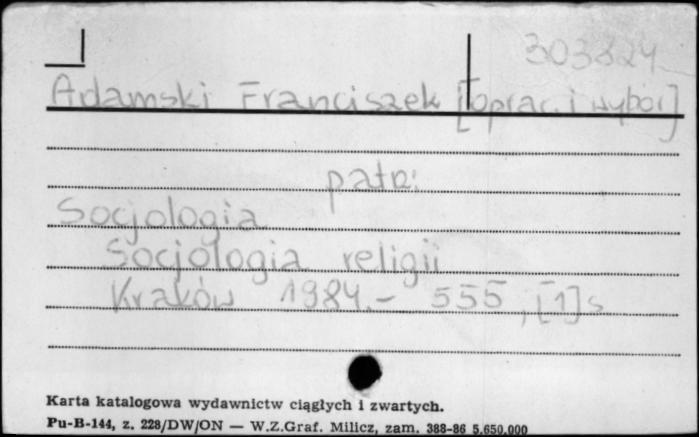 303824
Adamski Franciszek [oprac. i wybór]
patrz:
Socjologia
Socjologia religii
Kraków 1984.- 555, [1] s.
Karta katalogowa wydawnictw ciągłych i zwartych.
Pu-B-144, z. 228/DW/ON — W.Z.Graf. Milicz, zam. 388-86 5.650.000